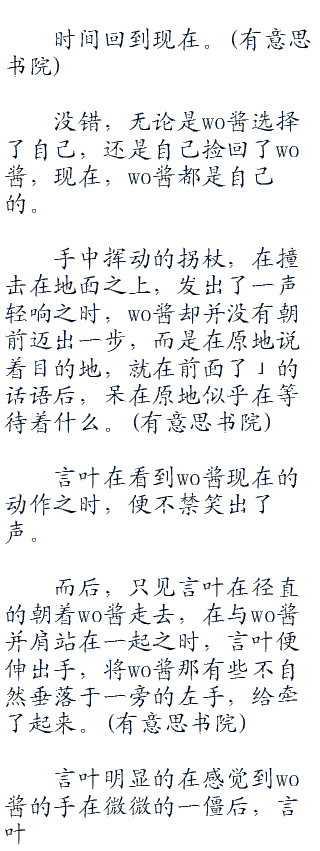 时间回到现在。(有意思
书院)
没错，无论是wo酱选择
了自己，还是自己捡回了wo
酱，现在，wo酱都是自己
的。
手中挥动的拐杖，在撞
击在地面之上，发出了一声
轻响之时，wo酱却并没有朝
前迈出一步，而是在原地说
着目的地，就在前面了」的
话语后，呆在原地似乎在等
待着什么。(有意思书院)
言叶在看到wo酱现在的
动作之时，便不禁笑出了
声。
而后，只见言叶在径直
的朝着wo酱走去，在与wo酱
并肩站在一起之时，言叶便
伸出手，将wo酱那有些不自
然垂落于一旁的左手，给牵
了起来。(有意思书院)
言叶明显的在感觉到wo
酱的手在微微的一僵后，言
叶